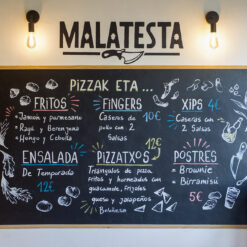 MALATESTA
PIZZAK ETA...
FRITOS
Jamón y parmesano
Raya y Berenjena
Hongo y Cebolla
FINGERS
Caseros de 10€
pollo con 2
Salsas
XIPS 4€
Caseros con
2 Salsas
ENSALADA
De Temporada
12€
PIZZATXOS 12€
Triángulos de pizza
fritos y horneados con
guacamole, frijoles
queso y jalapeños
POSTRES
Brownie
Birramisú
5€